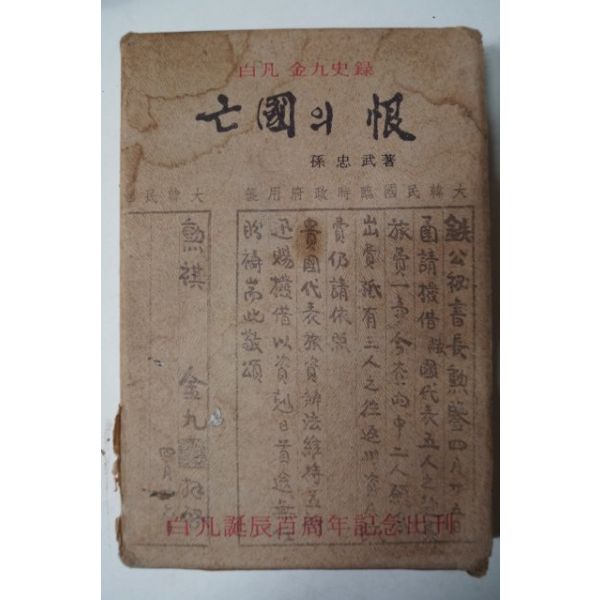 白凡 金九史録
亡國의 恨
孫忠武著
大韓民國臨時政府用箋
大韓民國
鉄公秘書長勲鑒四月廿五
函請機借 國代表五人之
旅費一
出費 有三人之 返川資
費仍請依照
貴國代表旅資辦法維持
迅賜機借以資剋日首途
盼禱耑此敬頌
勲祺
金九 拜
四月
白凡誕辰百周年記念出刊